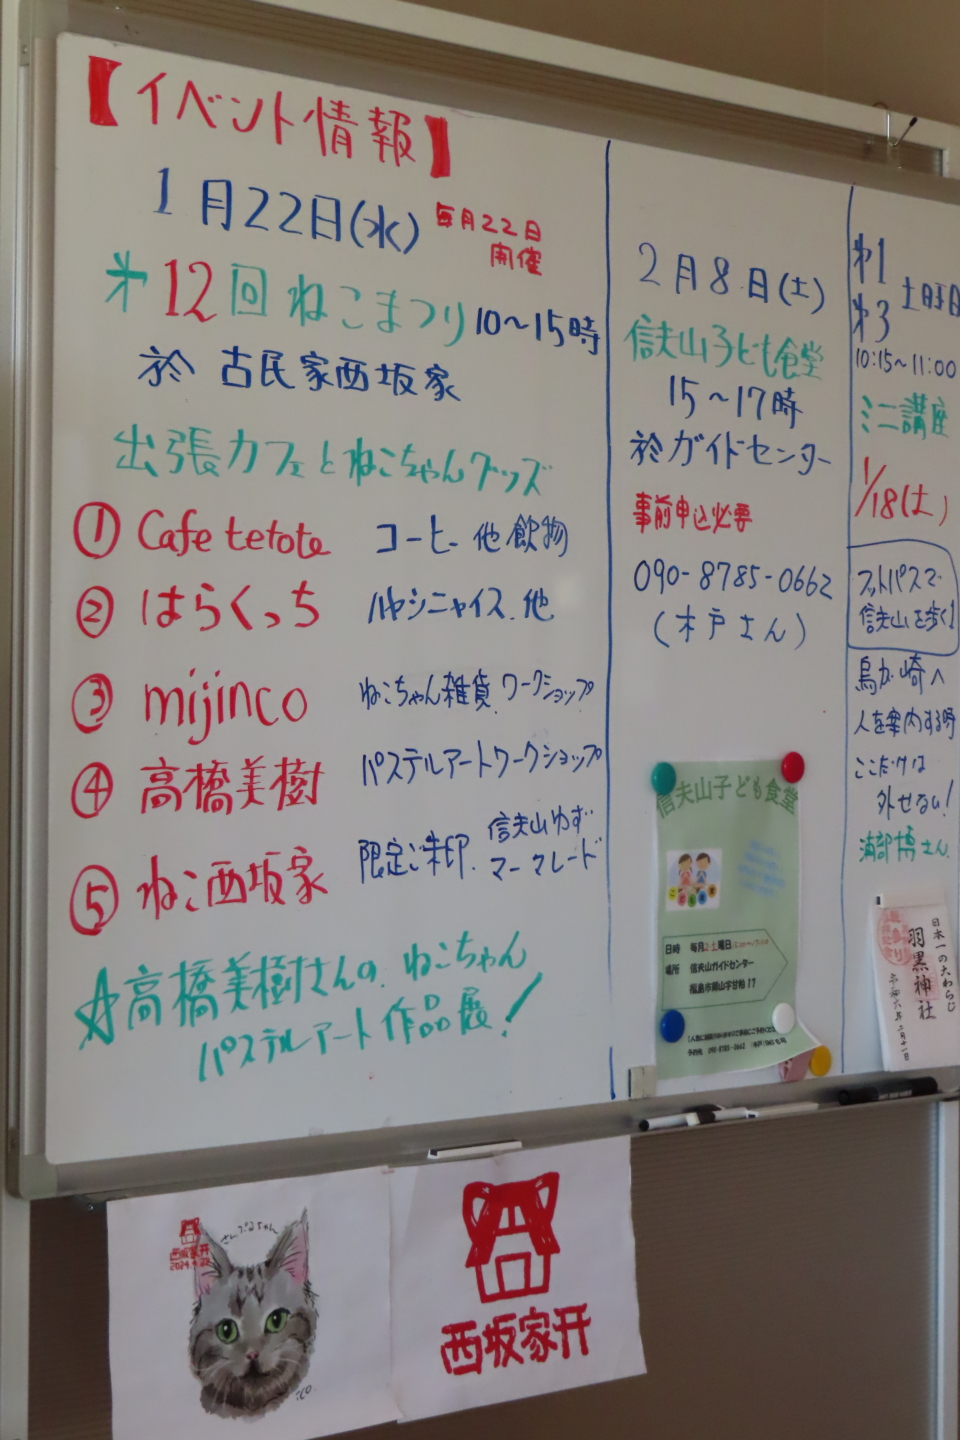 【イベント情報】
1月22日(水)
毎月22日
開催
第12回 ねこまつり 10〜15時
於 古民家西坂家
出張カフェとねこちゃんグッズ
① Cafe tetote コーヒー他飲物
② はらくっち ルヤシニャイス.他
③ mijinco ねこちゃん雑貨.ワークショップ
④ 高橋美樹 パステルアートワークショップ
⑤ ねこ西坂家 限定ご朱印.
信夫山ゆず
マーマレード
☆高橋美樹さんの.ねこちゃん
パステルアート作品展!
2月8日(土)
信夫山子ども食堂
15〜17時
於ガイドセンター
事前申込必要
090-8785-0662
(木戸さん)
第1
第3
土曜日
10:15〜11:00
ミニ講座
1/18(土)
フットパスで
信夫山を歩く1
烏ヶ崎へ
人を案内する時
ここだけは
外せない!
浦部博さん
信夫山子ども食堂
こども食堂
日時 毎月2土曜日
場所 信夫山ガイドセンター
福島市御山字甘粕17
日本一の大わらじ
羽黒神社
令和六年二月十一日
さんぷるちゃん
西坂家
西坂家